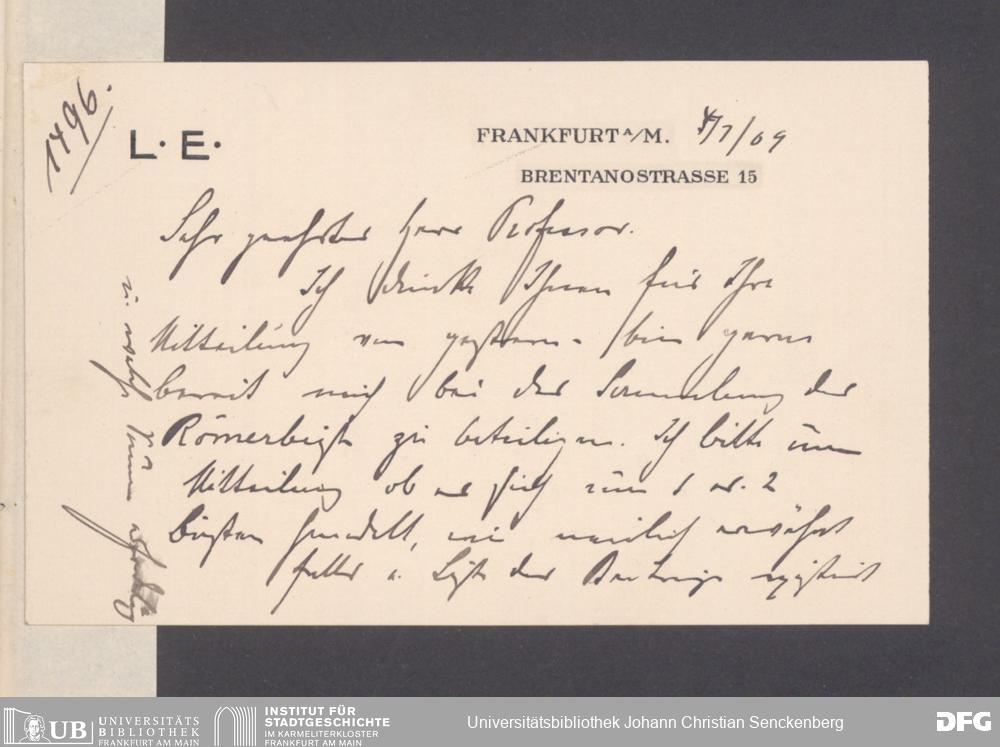 1496.
L. E.
FRANKFURT A/M. 4/7/09
BRENTANOSTRASSE 15
Sehr geehrter Herr Professor.
Ich danke Ihnen für Ihre
Mitteilung von gestern - bin gerne
bereit mich bei der Sammlung der
Römerbüste zu beteiligen. Ich bitte um
Mitteilung ob es sich um 1 od. 2
Büsten handelt, wie neulich erwähnt
falls e. Liste der Beiträge existiert
u. welche Summe
UB UNIVERSITÄTS
BIBLIOTHEK
FRANKFURT AM MAIN
INSTITUT FÜR
STADTGESCHICHTE
IM KARMELITERKLOSTER
FRANKFURT AM MAIN
Universitätsbibliothek Johann Christian Senckenberg
DFG